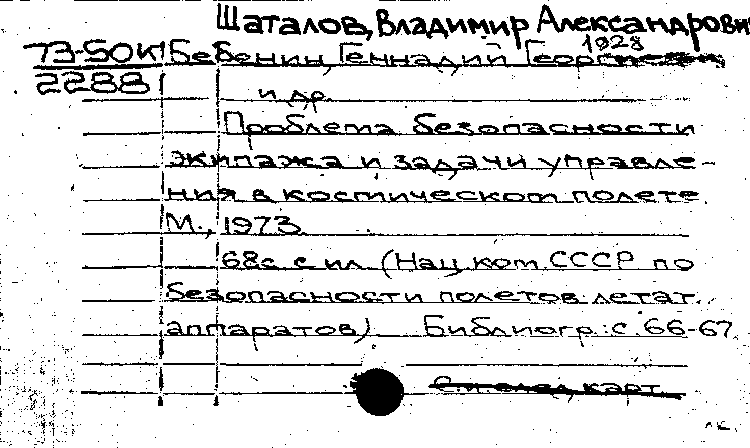 Шаталов, Владимир Александрович
73-50К Бебенин, Геннадий Георгиевич, 1928
2288
и др.
Проблема безопасности
экипажа и задачи управле-
ния в космическом полете.
М., 1973.
68с. с ил. (Нац. ком. СССР по
безопасности полетов летат.
аппаратов). Библиогр.: с. 66-67
карт.